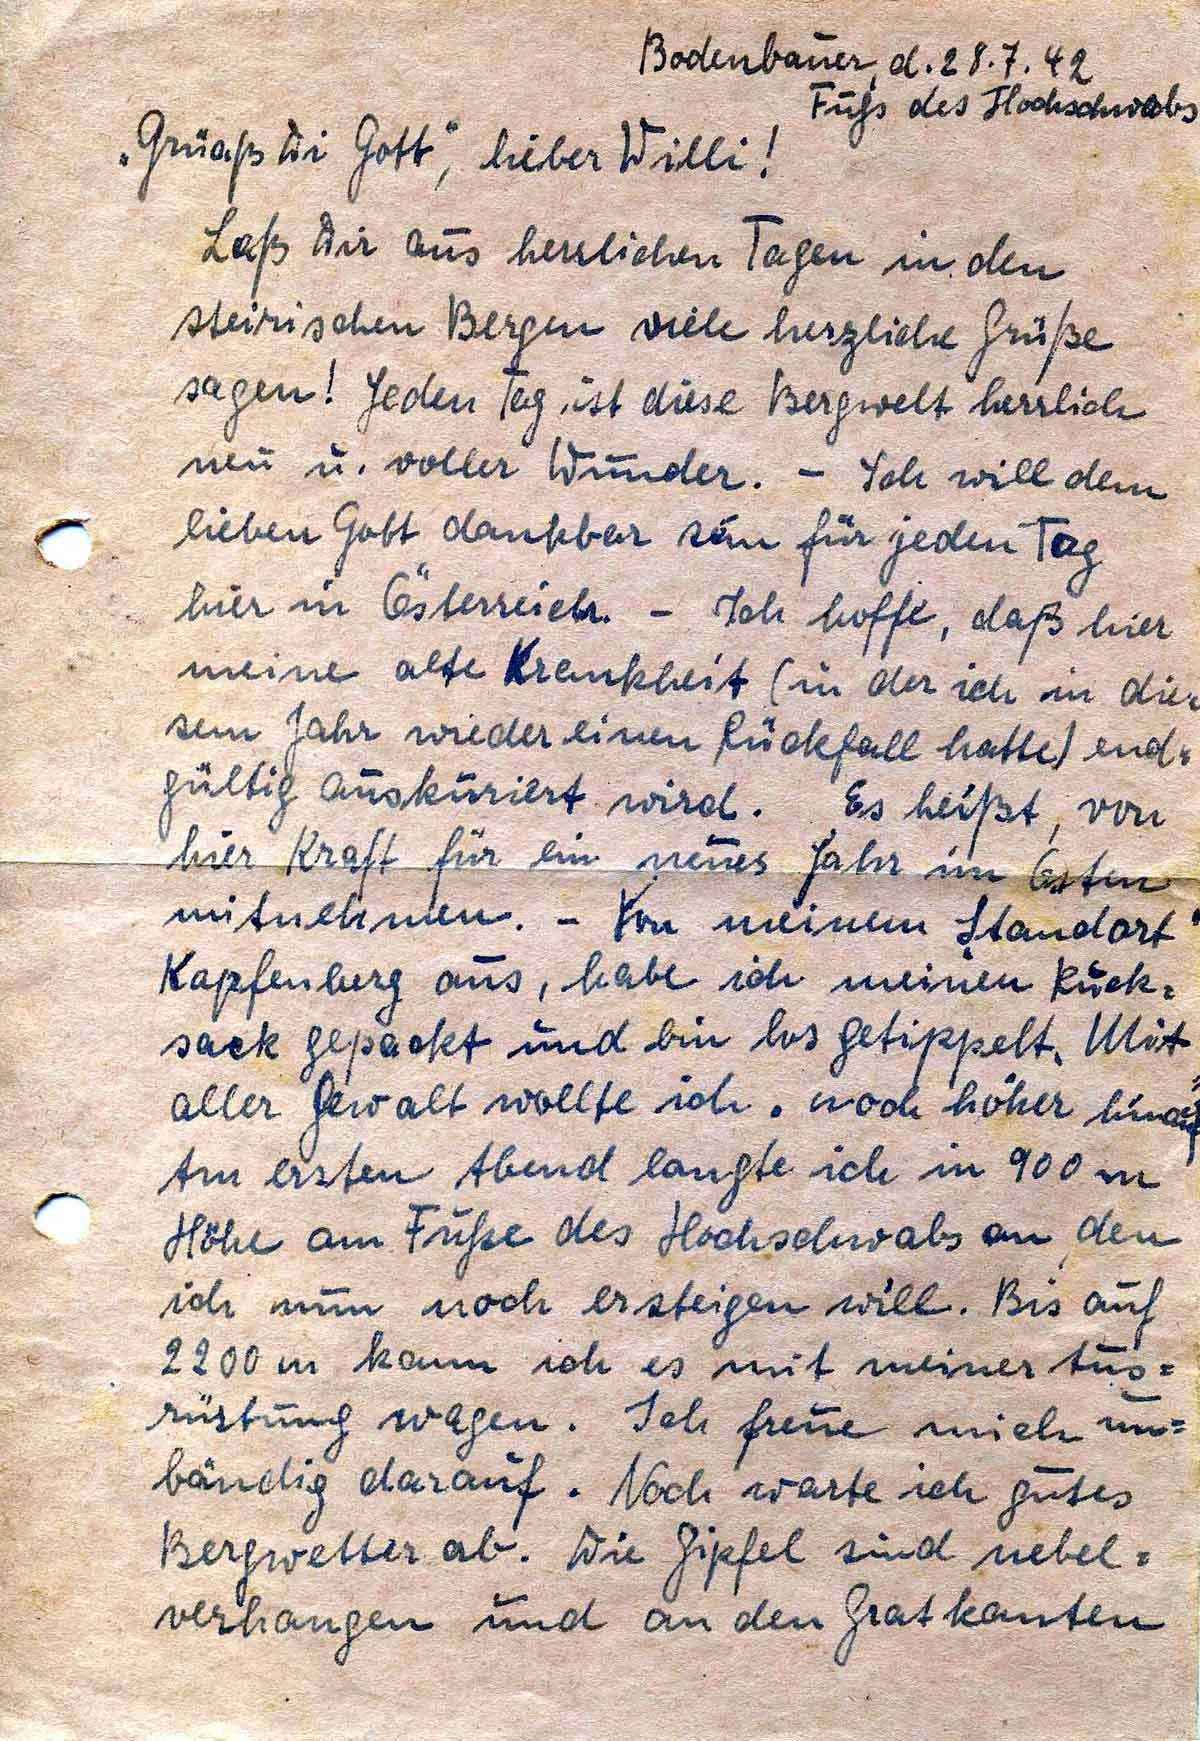 Bodenbauer, d. 28.7.42
Fuß des Hochschwabs
„Grüaß Di Gott“, lieber Willi!
Laß Dir aus herrlichen Tagen in den
steirischen Bergen viele herzliche Grüße
sagen! Jeden Tag ist diese Bergwelt herrlich
neu u. voller Wunder. – Ich will dem
lieben Gott dankbar sein für jeden Tag
hier in Österreich. – Ich hoffe, daß hier
meine alte Krankheit (in der ich in die=
sem Jahr wieder einen Rückfall hatte) end=
gültig auskuriert wird. Es heißt, von
hier Kraft für ein neues Jahr im Osten
mitnehmen. – Von meinem „Standort“
Kapfenberg aus, habe ich meinen Ruck=
sack gepackt und bin los getippelt. Mit
aller Gewalt wollte ich „noch höher hinauf“
Am ersten Abend langte ich in 900 m
Höhe am Fuße des Hochschwabs an, den
ich nun noch ersteigen will. Bis auf
2200 m kann ich es mit meiner Aus=
rüstung wagen. Ich freue mich un=
bändig darauf. Noch warte ich gutes
Bergwetter ab. Die Gipfel sind nebel=
verhangen und an den Gratkanten